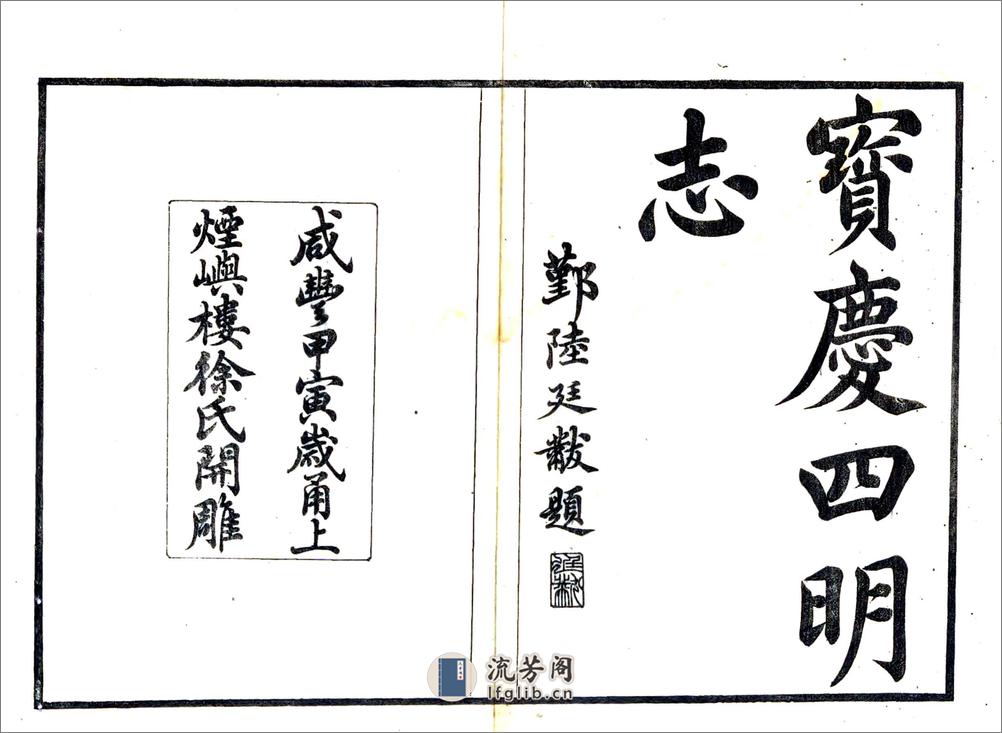 寳慶四明
志
鄞陸廷黻題
廷黻
咸豐甲寅歲甬上
煙嶼樓徐氏開雕
流芳阁
lfglib.cn